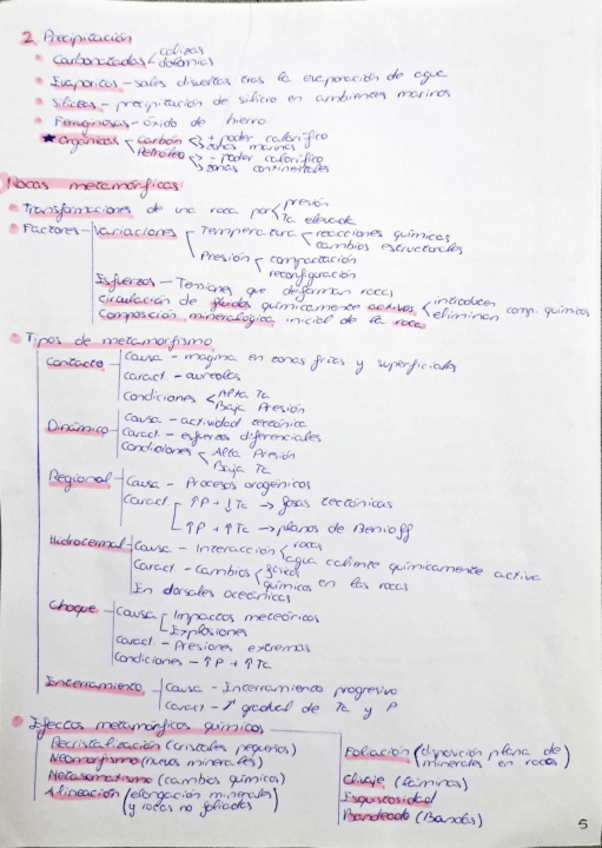 2. Precipitación
• Carbonatadas < calizas
dolomias
• Evaporitas - sales disueltas tras la evaporación de agua
• Silíceas - precipitación de silicio en ambientes marinos
• Ferruginosas - óxido de hierro
★ Orgánicas < Carbón <> + poder calorífico
zonas marinas
Petróleo <> - poder calorífico
zonas continentales
Rocas metamórficas
• Transformaciones de una roca por < presión
Tª elevada
• Factores - Variaciones - Temperatura < reacciones químicas
cambios estructurales
Presión < compactación
reconfiguración
Esfuerzos - Tensiones que deforman rocas
circulación de fluidos químicamente activos < introducen
eliminan comp. químicos
Composición mineralógica inicial de la roca
• Tipos de metamorfismo
Contacto - Causa - magma en zonas frías y superficiales
Caract. - aureolas
Condiciones < Alta Tª
Baja Presión
Dinámico - Causa - actividad tectónica
Caract. - esfuerzos diferenciales
Condiciones < Alta Presión
Baja Tª
Regional - Causa - Procesos orogénicos
Caract. - ↑P + ↓Tª → fosas tectónicas
↑P + ↑Tª → planos de Benioff
Hidrotermal - Causa - Interacción < rocas
agua caliente químicamente activa
Caract. - Cambios < físicos
químicos en las rocas
En dorsales oceánicas
Choque - Causa - Impactos meteóricos
Explosiones
Caract. - Presiones extremas
Condiciones - ↑P + ↑Tª
Enterramiento - Causa - Enterramiento progresivo
Caract - ↗ gradual de Tª y P
• Efectos metamórficos químicos
Recristalización (cristales pequeños)
Neomorfismo (nuevos minerales)
Metasomatismo (cambios químicos)
Alineación (elongación minerales)
y rocas no foliadas
Foliación (disposición plana de
minerales en rocas)
Clivaje (láminas)
Esquistosidad
Bandeado (Bandas)
5